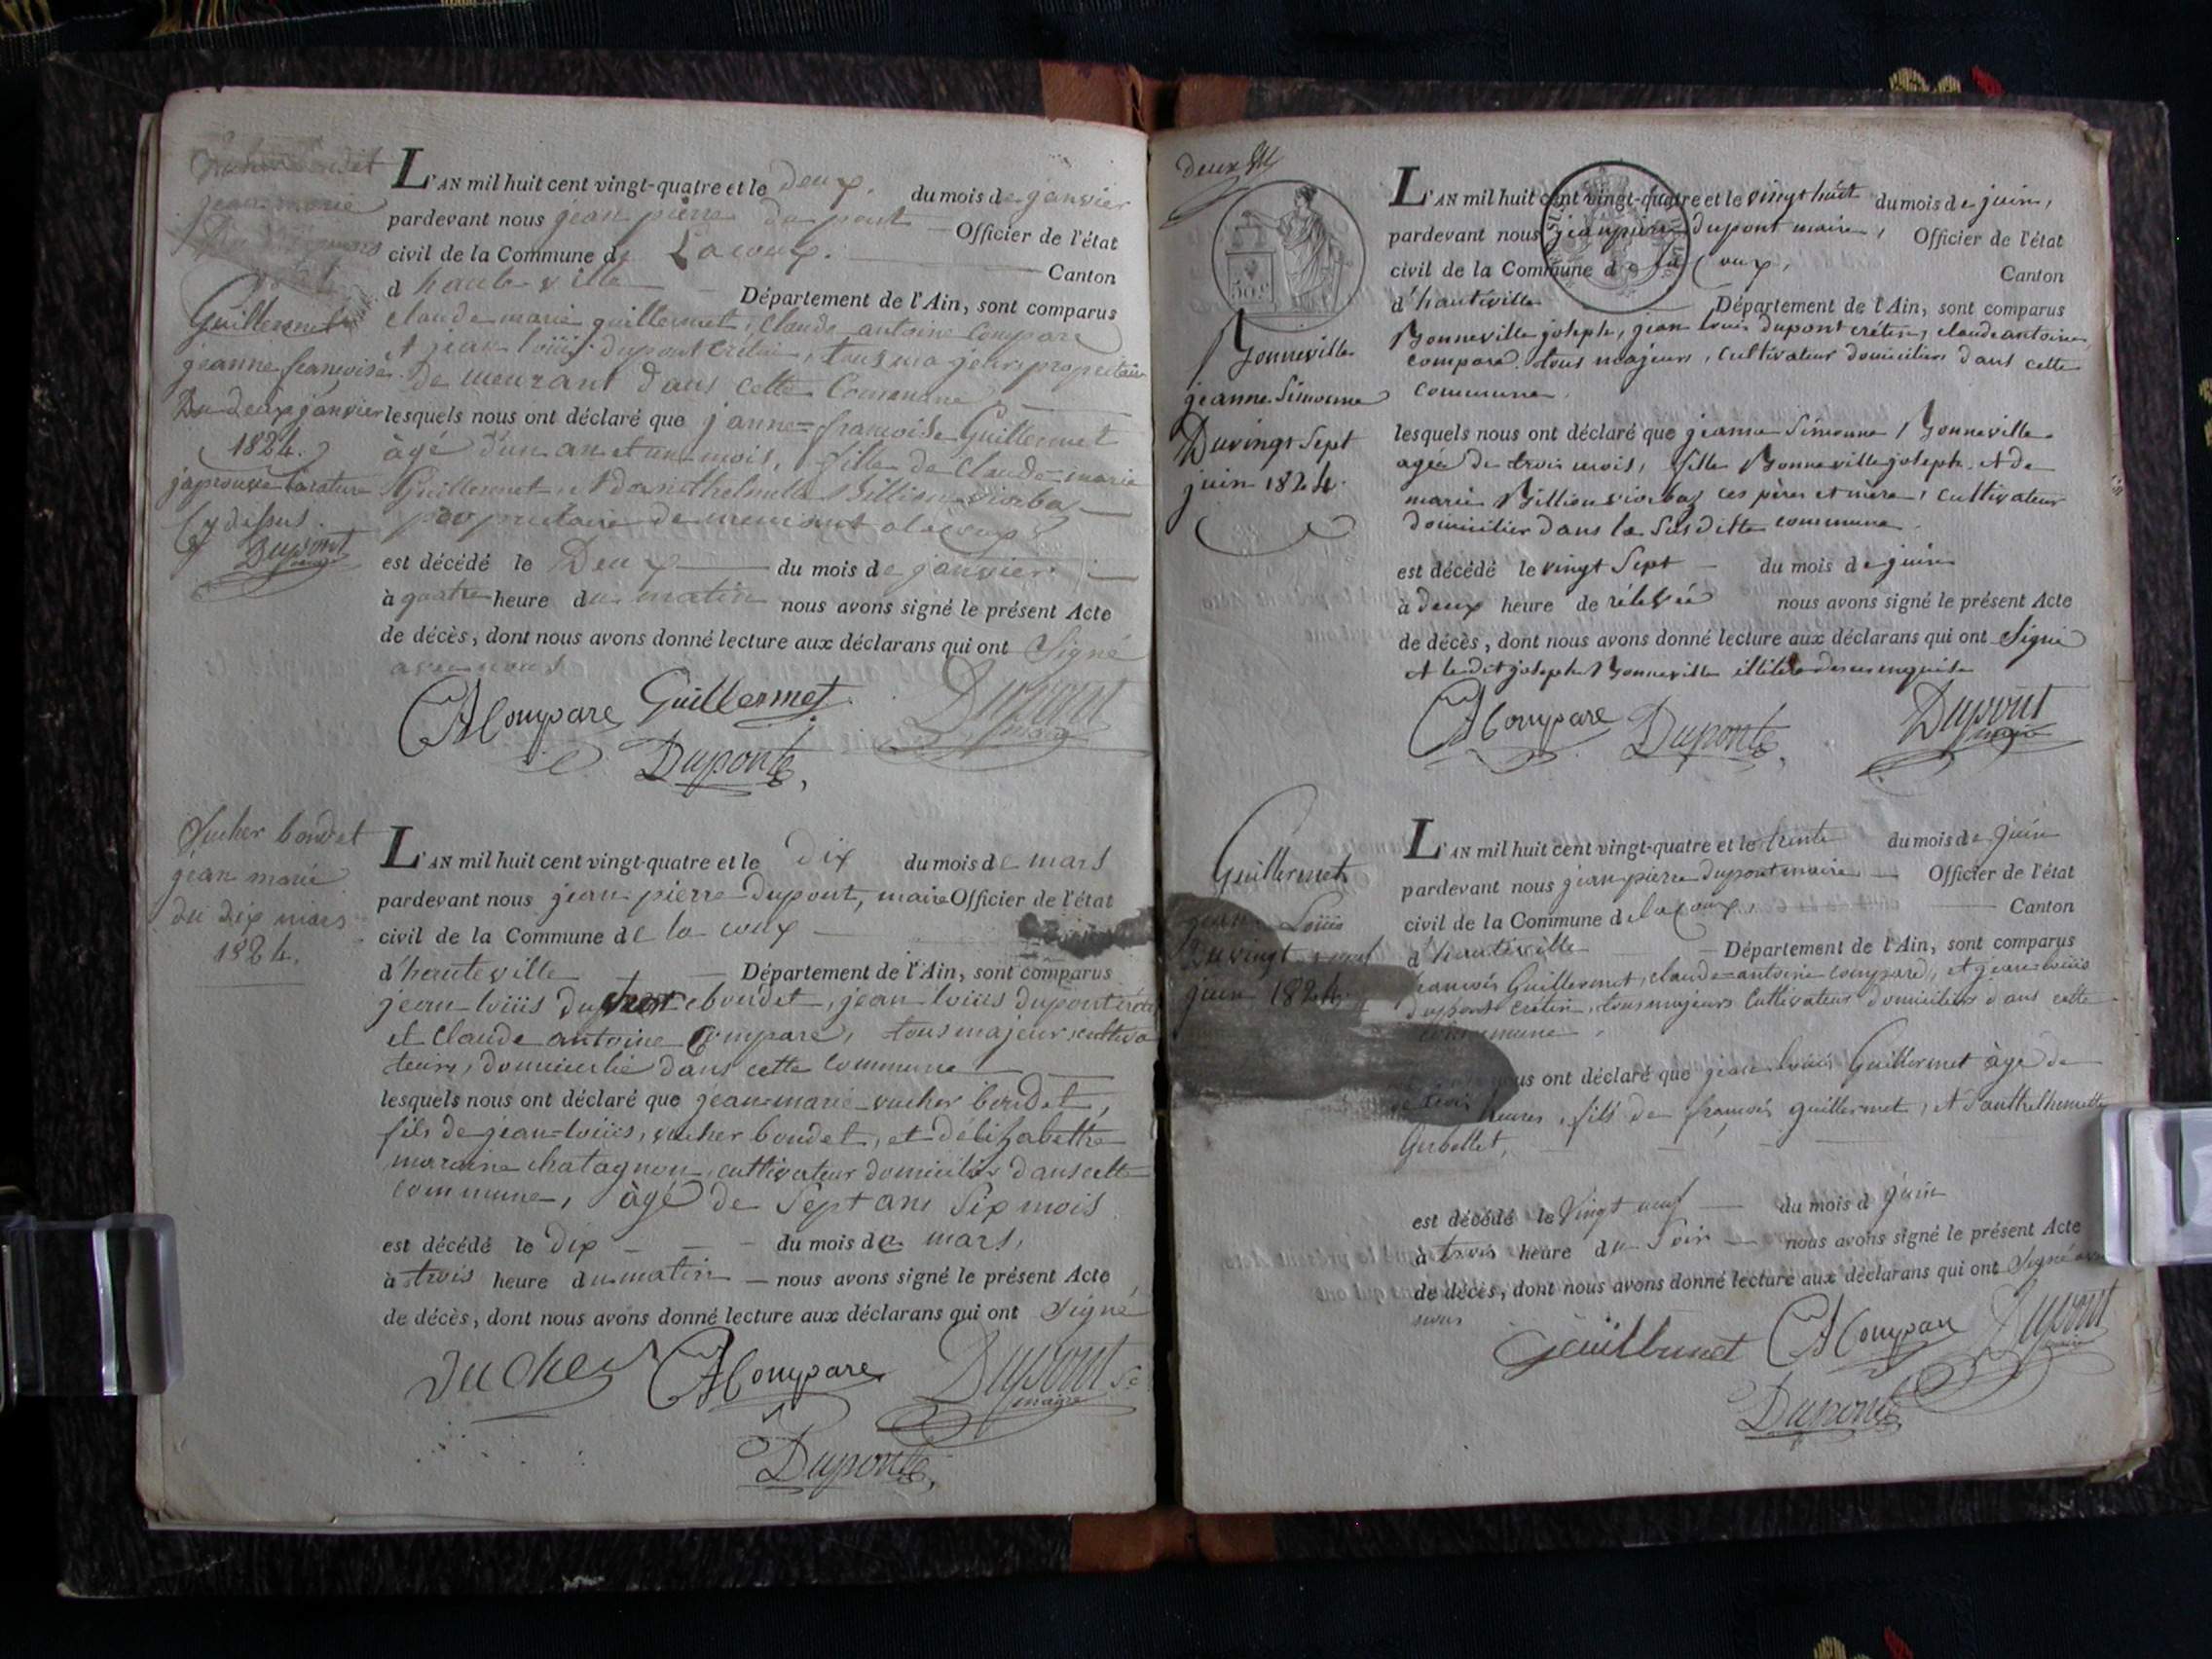 jean marie
Guillermet
jeanne françoise
Du deux janvier
1824.
japrouve la rature
Cy dessus.
Dupont
maire
L'AN mil huit cent vingt-quatre et le deux. du mois de janvier
pardevant nous jean pierre du pont Officier de l'état
civil de la Commune de Lacoux. Canton
d hauteville Département de l'Ain, sont comparus
claude marie guillermet, claude antoine compare
et jean louiis dupont crétin, tous majeurs propriétaire
demeurant dans cette Commune
lesquels nous ont déclaré que janne=françoise Guillermet
àgé d'un an et un mois, fille de Claude=marie
Guillermet et danthelmette Billion
propriétaire demeurant a lacoux
est décédé le Deux du mois de janvier.
à quatre heure du matin nous avons signé le présent Acte
de décès, dont nous avons donné lecture aux déclarans qui ont Signé
avec nous
CA Compare Guillermet Dupont
maire
Duponte,
Sucher boudet
jean marie
du dix mars
1824.
L'AN mil huit cent vingt-quatre et le dix du mois de mars
pardevant nous jean pierre Dupont, maire Officier de l'état
civil de la Commune de la coux
d'hauteville Département de l'Ain, sont comparus
jean louiis boudet, jean louiis dupont
et Claude antoine Compare, tous majeur, cultiva
teurs, domicilié dans cette Commune
lesquels nous ont déclaré que jean=marie sucher boudet,
fils de jean=louiis, sucher boudet, et délizabettre
moraine chatagnon, cultivateur domicilier dans cette
commune, àgé de Sept ans Six mois
est décédé le dix du mois de mars,
à trois heure du matin nous avons signé le présent Acte
de décès, dont nous avons donné lecture aux déclarans qui ont Signé
Sucher CA Compare Dupont
maire
Duponte,
deux
50 c
Bonneville
jeanne Simonne
Du vingt Sept
juin 1824.
L'AN mil huit cent vingt-quatre et le vingt huit du mois de juin,
pardevant nous jean pierre dupont maire, Officier de l'état
civil de la Commune de la Coux, Canton
d'hauteville Département de l'Ain, sont comparus
Bonneville joseph, jean louis dupont crétin, claude antoine
compare. tous majeurs, Cultivateur domicilier dans cette
commune.
lesquels nous ont déclaré que jeanne Simonne Bonneville
agée de trois mois, fille Bonneville joseph, et de
marie Billion ces pères et mère, cultivateur
domicilier dans la Susditte commune.
est décédé le vingt Sept du mois de juin
à deux heure de rélevée nous avons signé le présent Acte
de décès, dont nous avons donné lecture aux déclarans qui ont Signé
et ledit joseph Bonneville illitéré de ce enquis
CA Compare Duponte, Dupont
maire
Guillermet
jean Louis
Du vingt neuf
juin 1824.
L'AN mil huit cent vingt-quatre et le trente du mois de juin
pardevant nous jean pierre dupont maire Officier de l'état
civil de la Commune de la Coux, Canton
d'hauteville Département de l'Ain, sont comparus
francois Guillermet, claude=antoine compare, et jean=louiis
dupont cretin, tous majeurs Cultivateurs domiciliers dans cette
commune,
nous ont déclaré que jean louis Guillermet àgé de
trois heures, fils de francois guillermet, et d'anthelmette
Gerbollet,
est décédé le Vingt neuf du mois d juin
à trois heure du Soir nous avons signé le présent Acte
de décès, dont nous avons donné lecture aux déclarans qui ont Signé avec
nous
Guillermet CA Compare Dupont
maire
Duponte